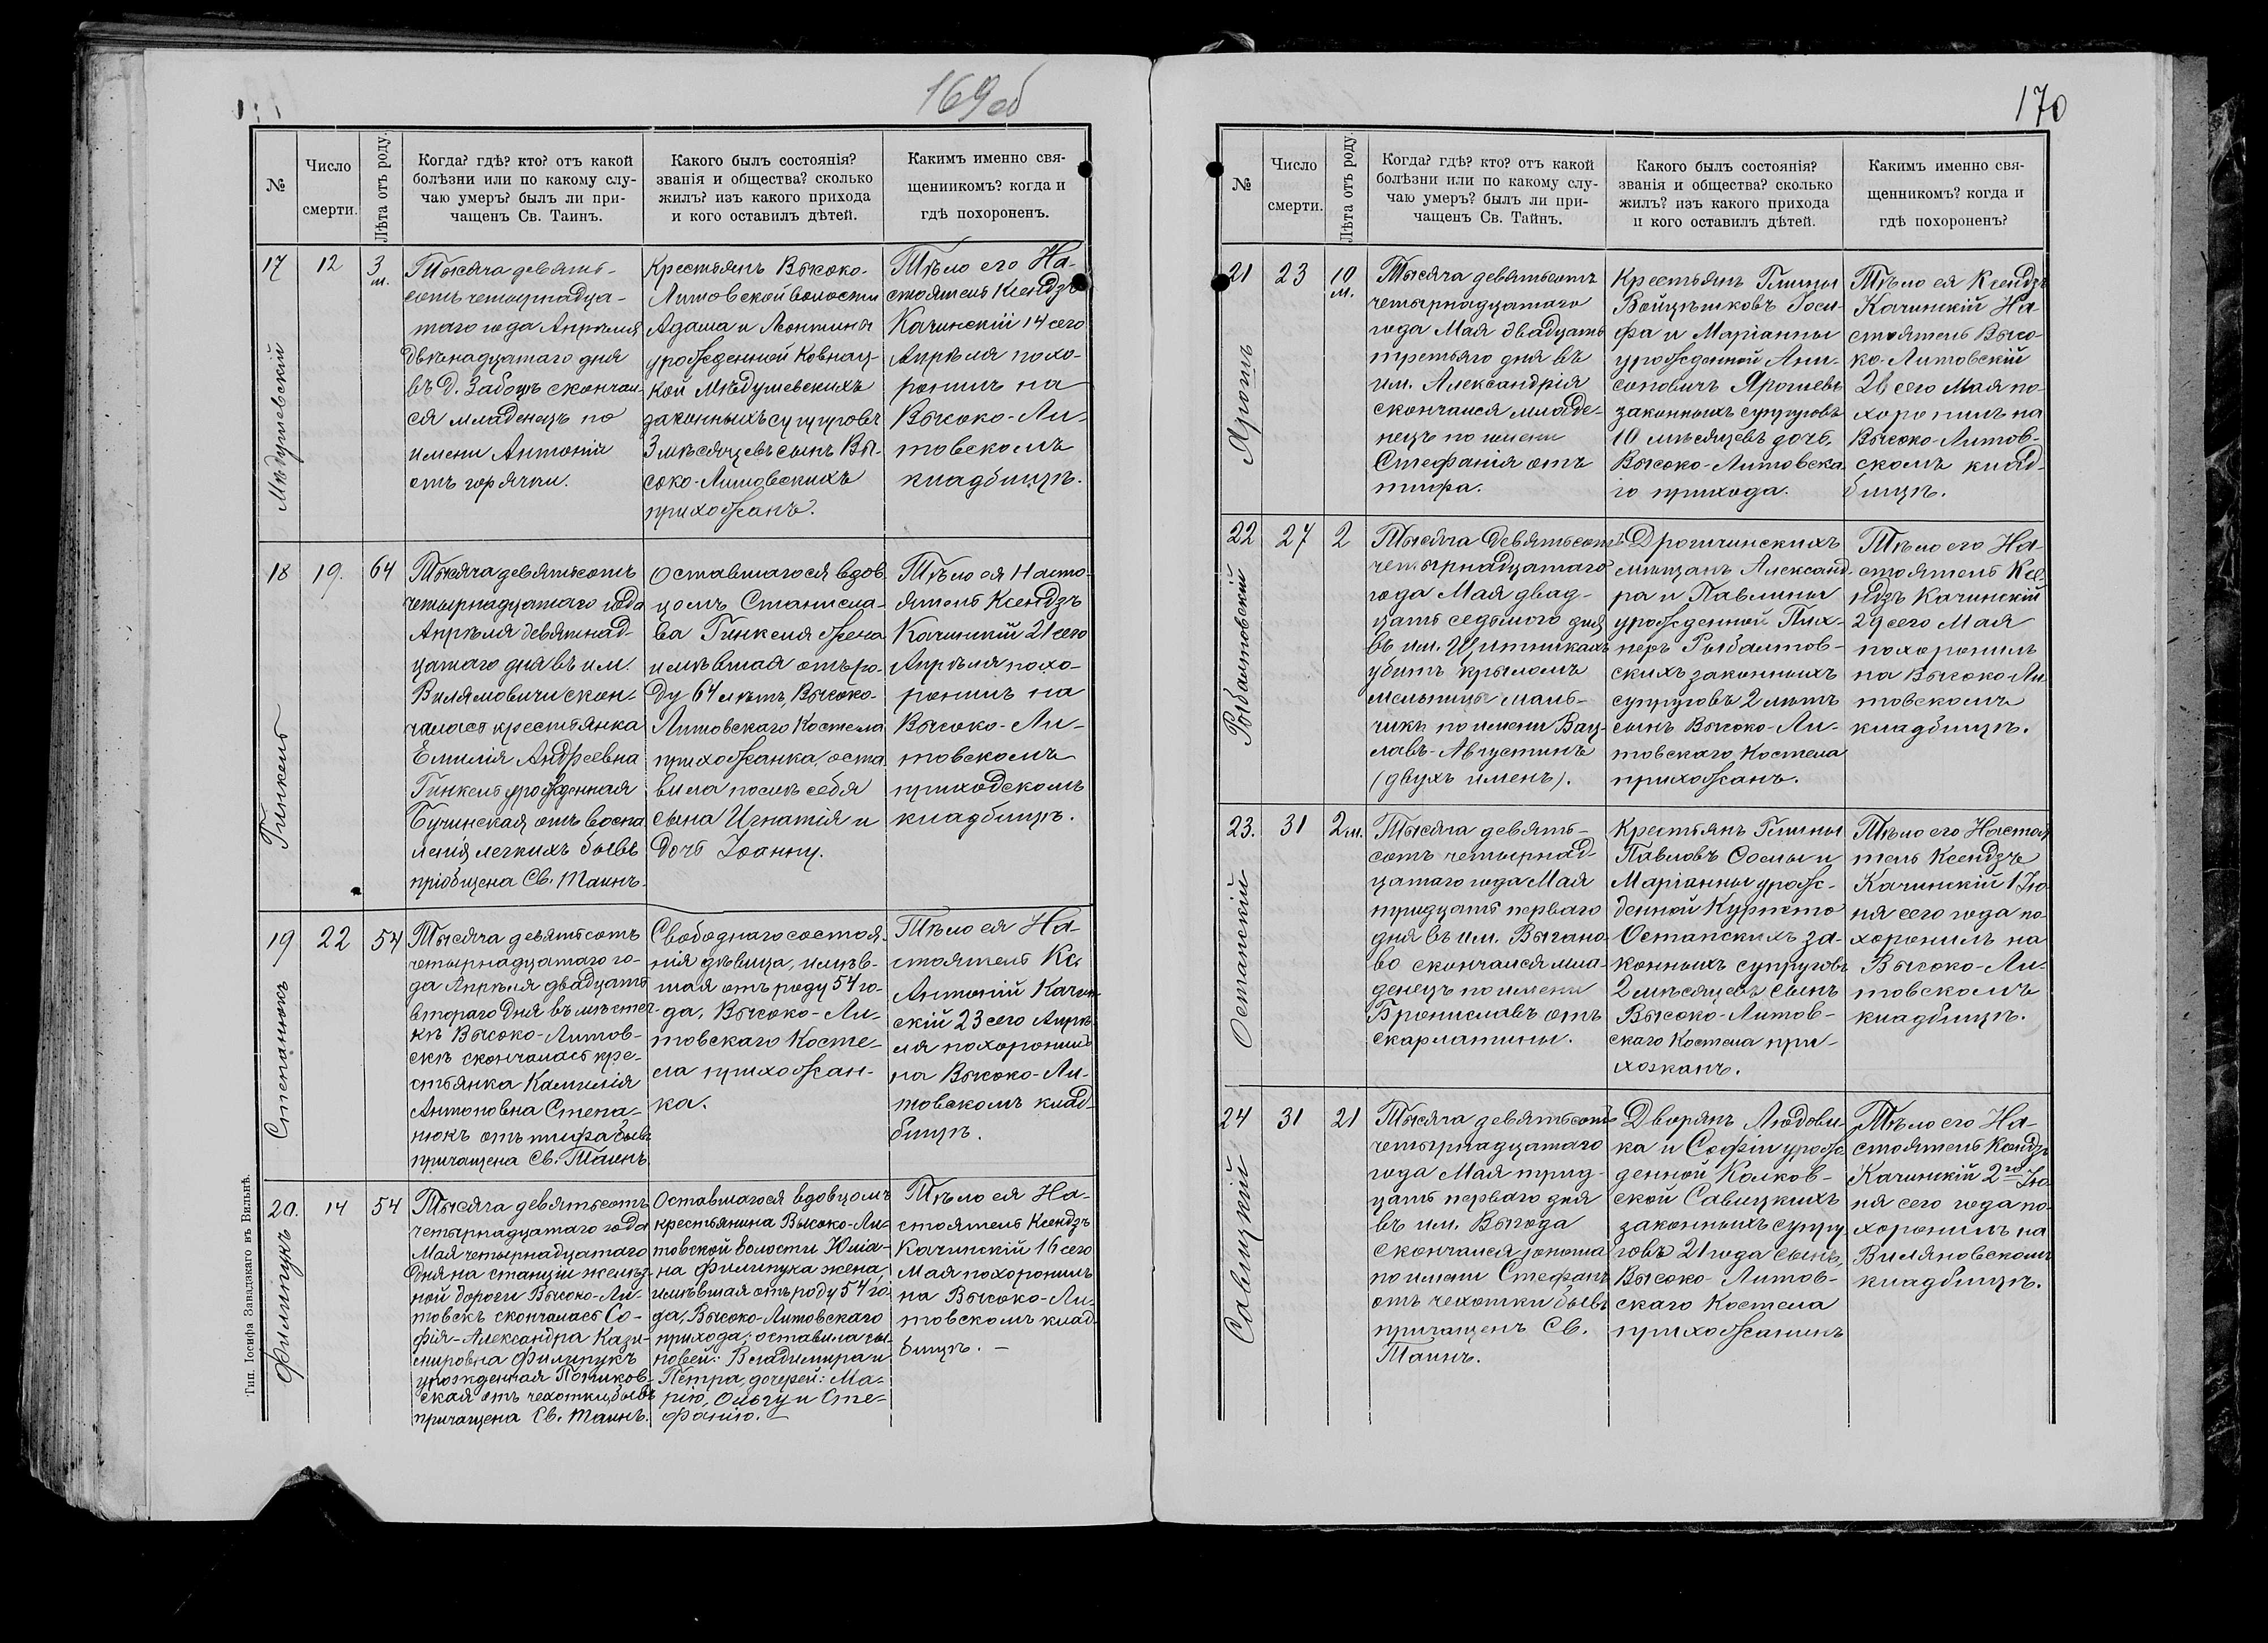 169об
№
Число
смерти.
Лѣта отъ роду.
Когда? гдѣ? кто? отъ какой
болѣзни или по какому слу-
чаю умеръ? былъ ли при-
чащенъ Св. Таинъ.
Какого былъ состоянія?
званія и общества? сколько
жилъ? изъ какого прихода
и кого оставилъ дѣтей.
Какимъ именно свя-
щенникомъ? когда и
гдѣ похороненъ.
17
Мѣдушевскій
12
3
м.
Тысяча девять-
сотъ четырнадца-
таго года Апрѣля
двѣнадцатаго дня
въ д. скончал-
ся младенецъ по
имени Антоній
отъ горячки.
Крестьянъ Высоко-
Литовской волости
Адама и Леонтины
урожденной Ковнац-
кой Мѣдушевскихъ
законныхъ супруговъ
3 мѣсяцевъ сынъ Вы-
соко-Литовскихъ
прихожанъ.
Тѣло его На-
стоятель Ксендзъ
Качинскій 14 сего
Апрѣля похо-
ронилъ на
Высоко-Ли-
товскомъ
кладбищѣ.
18
Гинкель
19.
64
Тысяча девятьсотъ
четырнадцатаго года
Апрѣля девятнад-
цатаго дня въ им.
Вилямовичи скон-
чалась крестьянка
Емилія Андреевна
Гинкель урожденная
Бучинская отъ воспа
ленія легкихъ бывъ
пріобщена Св. Таинъ.
Оставшагося вдов
цомъ Станисла-
ва Гинкеля жена
имѣвшая отъ ро-
ду 64 лѣтъ, Высоко-
Литовскаго Костела
прихожанка, оста
вила послѣ себя
сына Игнатія и
дочь Іоанну.
Тѣло ея Насто-
ятель Ксендзъ
Качинскій 21 сего
Апрѣля похо-
ронилъ на
Высоко-Ли-
товскомъ
приходскомъ
кладбищѣ.
19
Степанюкъ
22
54
Тысяча девятьсотъ
четырнадцатаго го-
да Апрѣля двадцать
втораго дня въ мѣстеч-
кѣ Высоко-Литов-
скѣ скончалась кре-
стьянка Камилія
Антоновна Степа-
нюкъ отъ тифа бывъ
причащена Св. Таинъ.
Свободнаго состоя-
нія дѣвица, имѣв-
шая отъ роду 54 го-
да, Высоко-Ли-
товскаго Косте-
ла прихожан-
ка.
Тѣло ея На-
стоятель Кс.
Антоній Качин-
скій 23 сего Апрѣ-
ля похоронилъ
на Высоко-Ли-
товскомъ клад-
бищѣ.
20.
Филипукъ
14
54
Тысяча девятьсотъ
четырнадцатаго года
Мая четырнадцатаго
дня на станціи желѣз-
ной дороги Высоко-Ли-
товскъ скончалась Со-
фія-Александра Кази-
мировна Филипукъ
урожденная
отъ чехотки, бывъ
причащена Св. Таинъ.
Оставшагося вдовцомъ
крестьянина Высоко-Ли-
товской волости Юліа-
на Филипука жена,
имѣвшая отъ роду 54 го-
да, Высоко-Литовскаго
прихода; оставила сы-
новей: Владимира и
Петра, дочерей: Ма-
рію, Ольгу и Сте-
фанію.
Тѣло ея На-
стоятель Ксендзъ
Качинскій 16 сего
Мая похоронилъ
на Высоко-Ли-
товскомъ клад-
бищѣ. —
Тип. Іосифа Завадзкаго въ Вильнѣ.
170
№
Число
смерти.
Лѣта отъ роду.
Когда? гдѣ? кто? отъ какой
болѣзни или по какому слу-
чаю умеръ? былъ ли при-
чащенъ Св. Тайнъ.
Какого былъ состоянія?
званія и общества? сколько
жилъ? изъ какого прихода
и кого оставилъ дѣтей.
Какимъ именно свя-
щенникомъ? когда и
гдѣ похороненъ?
21
23
10
м.
Тысяча девятьсотъ
четырнадцатаго
года Мая двадцать
третьяго дня въ
им. Александрія
скончался младе-
нецъ по имени
Стефанія отъ
тифа.
Крестьянъ Гмины
Іоси-
фа и Маріанны
урожденной
законныхъ супруговъ
10 мѣсяцевъ дочь.
Высоко-Литовска-
го прихода.
Тѣло ея Ксендзъ
Качинскій На-
стоятель Высо-
ко-Литовскій
сего Мая по-
хоронилъ на
Высоко-Литов-
скомъ клад-
бищѣ.
22
Рыбалтовскій
27
2
Тысяча девятьсотъ
четырнадцатаго
года Мая двад-
цать седьмого дня
въ им. Щитникахъ
убитъ крыломъ
мельницы маль-
чикъ по имени Вац-
лавъ-Августинъ
(двухъ именъ).
Дрогичинскихъ
мѣщанъ Александ-
ра и Павлины
урожденной
Рыбалтов-
скихъ законныхъ
супруговъ 2 лѣтъ
сынъ Высоко-Ли-
товскаго Костела
прихожанъ.
Тѣло его На-
стоятель Ксе-
ндзъ Качинскій
29 сего Мая
похоронилъ
на Высоко-Ли
товскомъ
кладбищѣ.
23.
Остапскій
31
2 м.
Тысяча девять-
сотъ четырнад-
цатаго года Мая
тридцать перваго
дня въ им. Выгано-
во скончался мла-
денецъ по имени
Брониславъ отъ
скарлатины.
Крестьянъ Гмины
Павловъ и
Маріанны урож-
денной
Остапскихъ за-
конныхъ супруговъ
2 мѣсяцевъ сынъ
Высоко-Литов-
скаго Костела при-
хожанъ.
Тѣло его Настоя
тель Ксендзъ
Качинскій 1 Ію
ня сего года по-
хоронилъ на
Высоко-Ли-
товскомъ
кладбищѣ.
24
Савицкій
31
21
Тысяча девятьсотъ
четырнадцатаго
года Мая трид-
цать перваго дня
въ им. Выгода
скончался юноша
по имени Стефанъ
отъ чехотки бывъ
причащенъ Св.
Таинъ.
Дворянъ Людови-
ка и Софіи урож-
денной Колков-
ской Савицкихъ
законныхъ супру
говъ 21 года сынъ,
Высоко-Литов-
скаго Костела
прихожанинъ
Тѣло его На-
стоятель Ксендзъ
Качинскій 2го Ію-
ня сего года по-
хоронилъ на
Виляновскомъ
кладбищѣ.